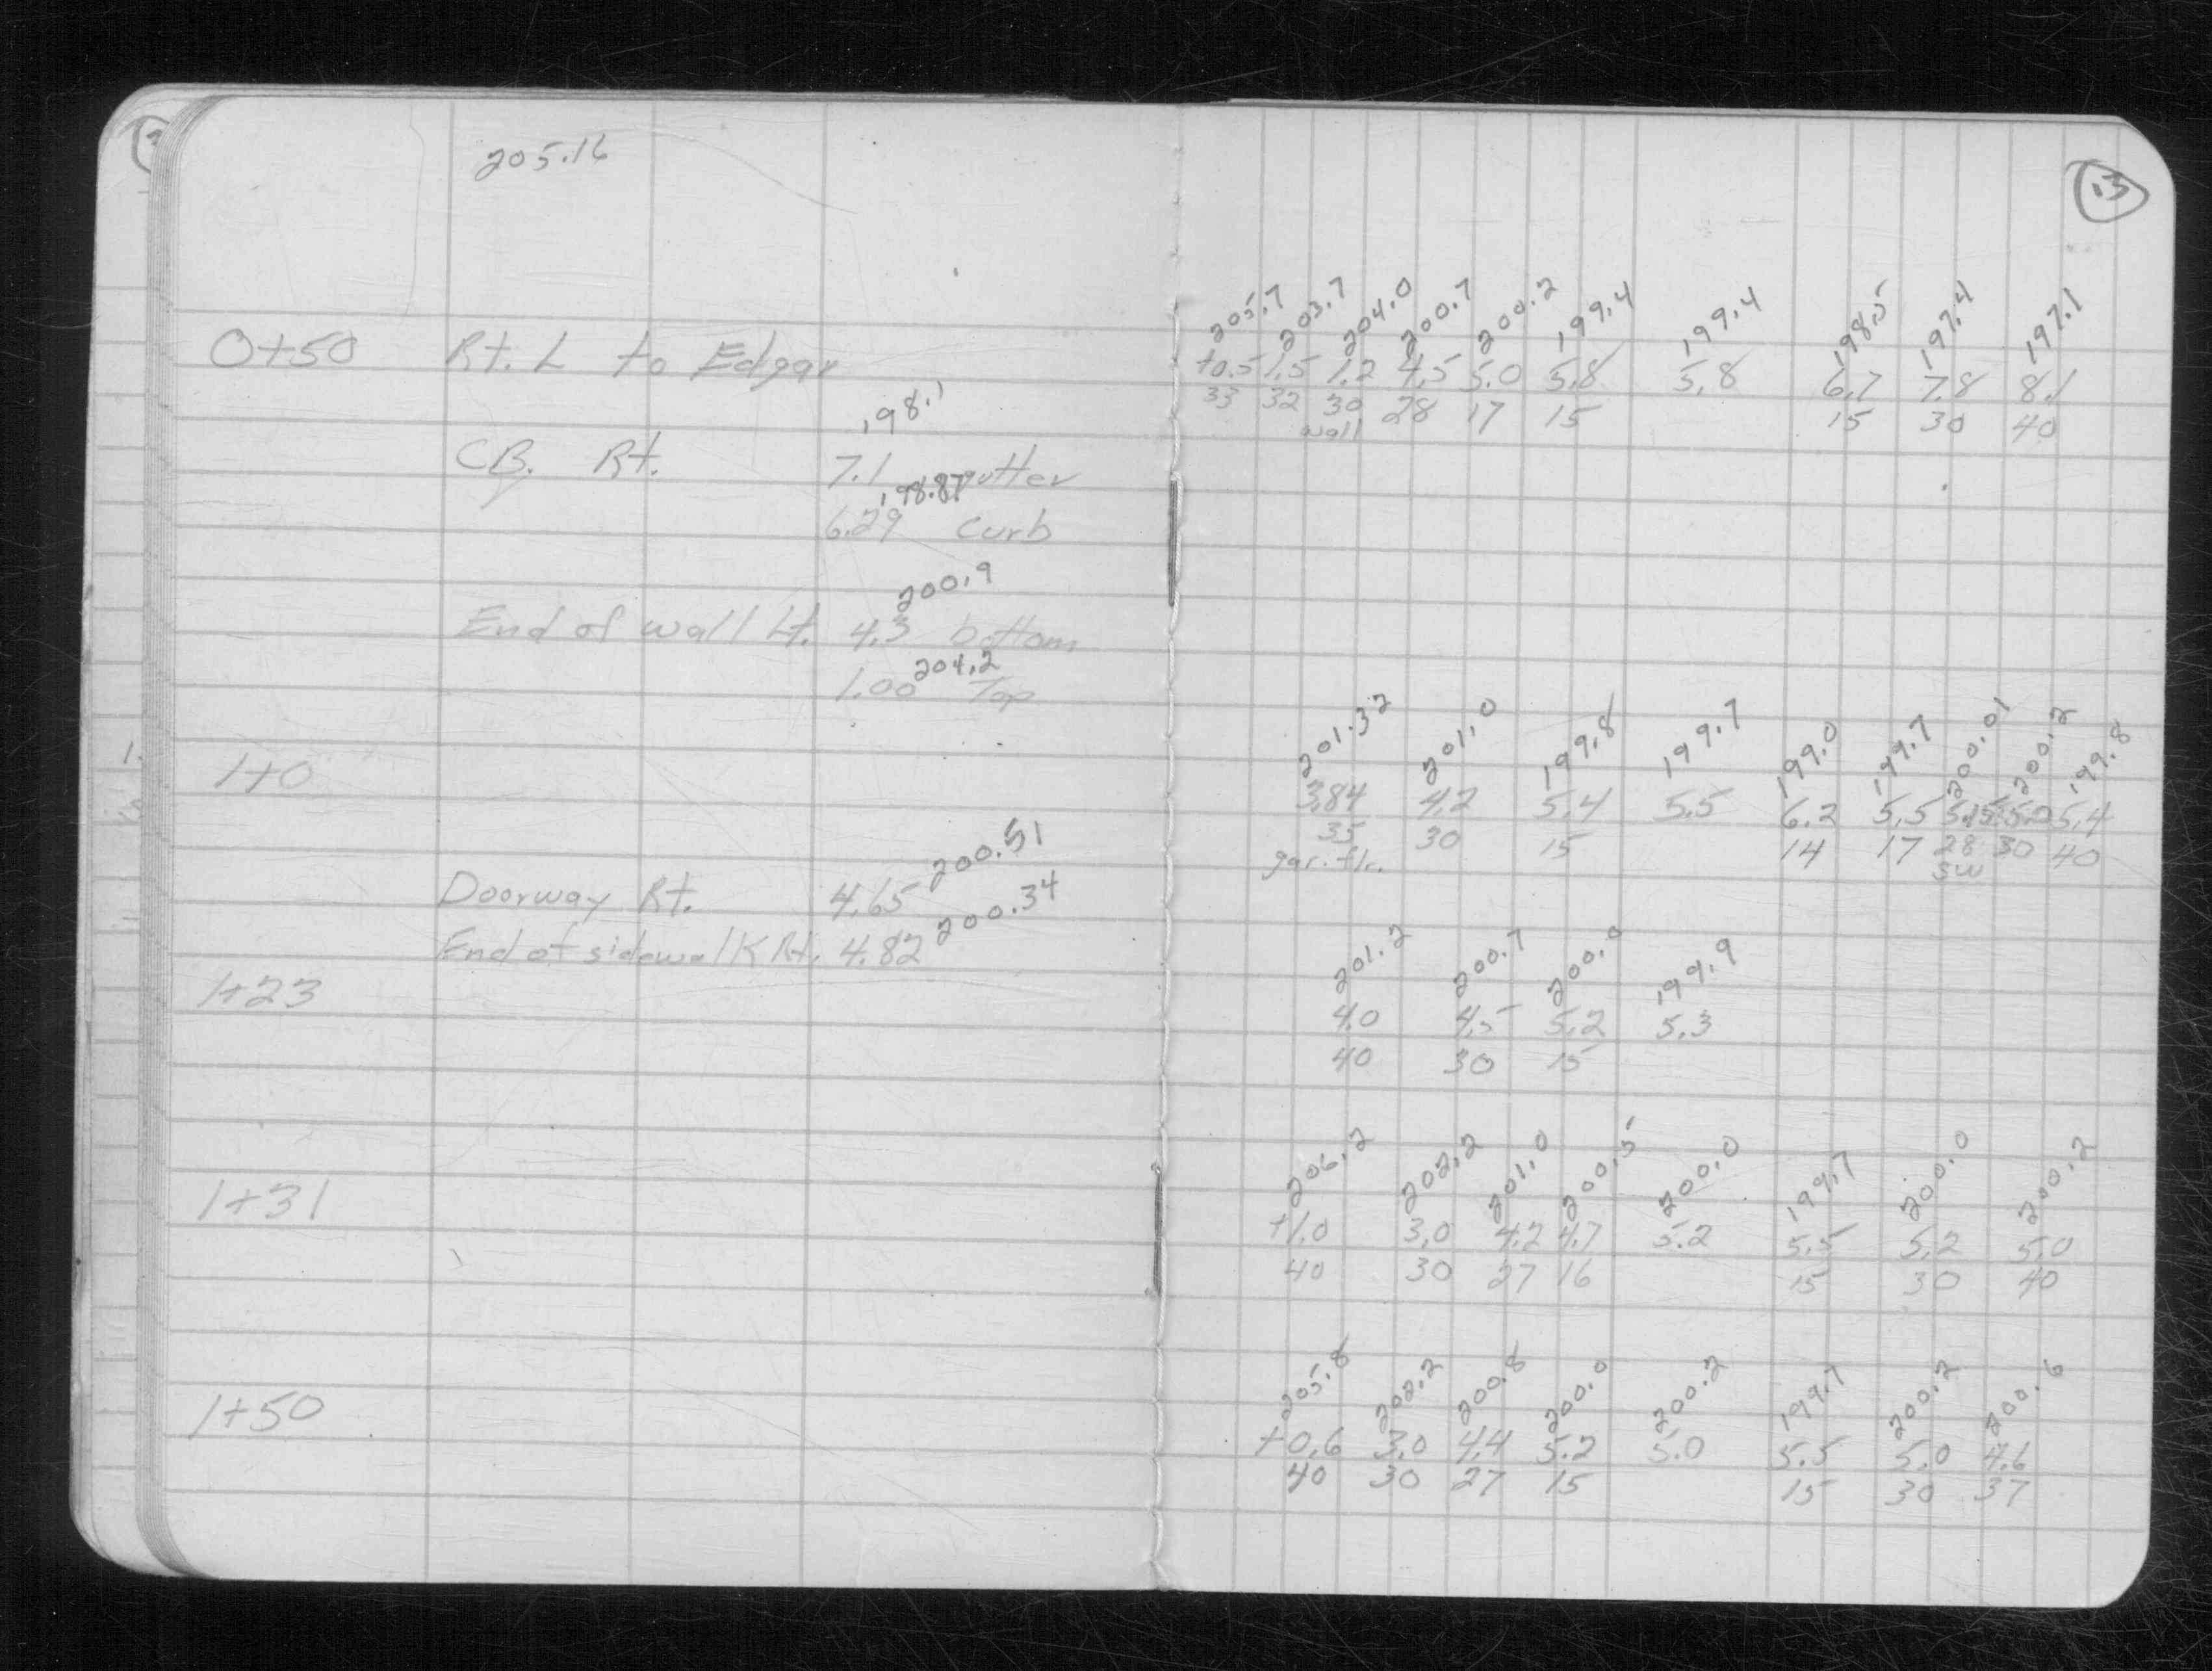 205.16
0+50 Rt. L to Edgar
198.1
CB. Rt. 7.1 gutter
198.87
6.29 curb
200.9
End of wall Lt. 4.3 bottom
204.2
1.00 Top
1+0
200.51
Doorway Rt. 4.65
200.34
End of sidewalk Rt. 4.82
1+23
1+31
1+50
13
205.7 203.7 204.0 200.7 200.2 199.4 199.4 198.5 197.4 197.1
+0.5 1.5 1.2 4.5 5.0 5.8 5.8 6.7 7.8 8.1
33 32 30 28 17 15 15 30 40
wall
201.32 201.0 199.8 199.7 199.0 199.7 200.01 200.2 199.8
3.84 4.2 5.4 5.5 6.2 5.5 5.15 5.0 5.4
35 30 15 14 17 28 30 40
gar. flr. sw
201.2 200.7 200.0 199.9
4.0 4.5 5.2 5.3
40 30 15
206.2 202.2 201.0 200.5 200.0 199.7 200.0 200.2
+1.0 3.0 4.2 4.7 5.2 5.5 5.2 5.0
40 30 27 16 15 30 40
205.8 202.2 200.8 200.0 200.2 199.7 200.2 200.6
+0.6 3.0 4.4 5.2 5.0 5.5 5.0 4.6
40 30 27 15 15 30 37